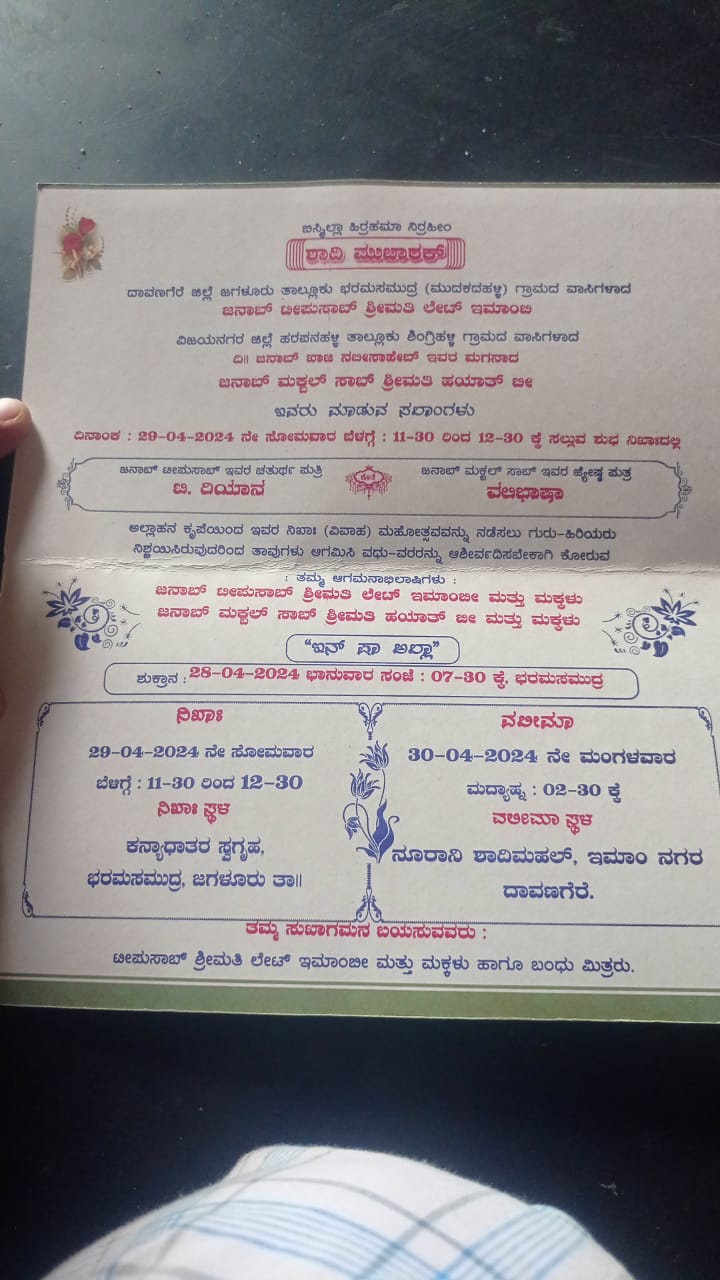 ಬಿಸ್ಮಿಲ್ಲಾ ಹಿರ್ರಹಮಾ ನಿರ್ರಹೀಂ
ಶಾದಿ ಮುಬಾರಕ್
ದಾವಣಗೆರೆ ಜಿಲ್ಲೆ ಜಗಳೂರು ತಾಲ್ಲೂಕು ಭರಮಸಮುದ್ರ (ಮುದಕದಹಳ್ಳಿ) ಗ್ರಾಮದ ವಾಸಿಗಳಾದ
ಜನಾಬ್ ಟೀಪುಸಾಬ್ ಶ್ರೀಮತಿ ಲೇಟ್ ಇಮಾಂಬಿ
ವಿಜಯನಗರ ಜಿಲ್ಲೆ ಹರಪನಹಳ್ಳಿ ತಾಲ್ಲೂಕು ಶಿಂಗ್ರಿಹಳ್ಳಿ ಗ್ರಾಮದ ವಾಸಿಗಳಾದ
ದಿ॥ ಜನಾಬ್ ಬಾಚಿ ನಬೀಸಾಹೇಬ್ ಇವರ ಮಗನಾದ
ಜನಾಬ್ ಮಕ್ಬಲ್ ಸಾಬ್ ಶ್ರೀಮತಿ ಹಯಾತ್ ಬೀ
ಇವರು ಮಾಡುವ ಸಲಾಂಗಳು
ದಿನಾಂಕ : 29-04-2024 ನೇ ಸೋಮವಾರ ಬೆಳಗ್ಗೆ : 11-30 ರಿಂದ 12-30 ಕ್ಕೆ ಸಲ್ಲುವ ಶುಭ ನಿಖಾಃದಲ್ಲಿ
ಜನಾಬ್ ಟೀಪುಸಾಬ್ ಇವರ ಚತುರ್ಥ ಪುತ್ರಿ
ಟಿ. ರಿಯಾನ
ಜೊತೆ
ಜನಾಬ್ ಮಕ್ಬಲ್ ಸಾಬ್ ಇವರ ಜ್ಯೇಷ್ಠ ಪುತ್ರ
ವಲಿಭಾಷಾ
ಅಲ್ಲಾಹನ ಕೃಪೆಯಿಂದ ಇವರ ನಿಖಾಃ (ವಿವಾಹ) ಮಹೋತ್ಸವವನ್ನು ನಡೆಸಲು ಗುರು-ಹಿರಿಯರು
ನಿಶ್ಚಯಿಸಿರುವುದರಿಂದ ತಾವುಗಳು ಆಗಮಿಸಿ ವಧು-ವರರನ್ನು ಆಶೀರ್ವದಿಸಬೇಕಾಗಿ ಕೋರುವ
: ತಮ್ಮ ಆಗಮನಾಭಿಲಾಷಿಗಳು :
ಜನಾಬ್ ಟೀಪುಸಾಬ್ ಶ್ರೀಮತಿ ಲೇಟ್ ಇಮಾಂಬೀ ಮತ್ತು ಮಕ್ಕಳು
ಜನಾಬ್ ಮಕ್ಬಲ್ ಸಾಬ್ ಶ್ರೀಮತಿ ಹಯಾತ್ ಬೀ ಮತ್ತು ಮಕ್ಕಳು
"ಇನ್ ಷಾ ಅಲ್ಲಾ"
ಶುಕ್ರಾನ : 28-04-2024 ಭಾನುವಾರ ಸಂಜೆ : 07-30 ಕ್ಕೆ, ಭರಮಸಮುದ್ರ
ನಿಖಾಃ
29-04-2024 ನೇ ಸೋಮವಾರ
ಬೆಳಿಗ್ಗೆ : 11-30 ರಿಂದ 12-30
ನಿಖಾಃ ಸ್ಥಳ
ಕನ್ಯಾಧಾತರ ಸ್ವಗೃಹ,
ಭರಮಸಮುದ್ರ, ಜಗಳೂರು ತಾ॥
ವಲೀಮಾ
30-04-2024 ನೇ ಮಂಗಳವಾರ
ಮದ್ಯಾಹ್ನ : 02-30 ಕ್ಕೆ
ವಲೀಮಾ ಸ್ಥಳ
ನೂರಾನಿ ಶಾದಿಮಹಲ್, ಇಮಾಂ ನಗರ
ದಾವಣಗೆರೆ.
ತಮ್ಮ ಸುಖಾಗಮನ ಬಯಸುವವರು :
ಟೀಪುಸಾಬ್ ಶ್ರೀಮತಿ ಲೇಟ್ ಇಮಾಂಬೀ ಮತ್ತು ಮಕ್ಕಳು ಹಾಗೂ ಬಂಧು ಮಿತ್ರರು.